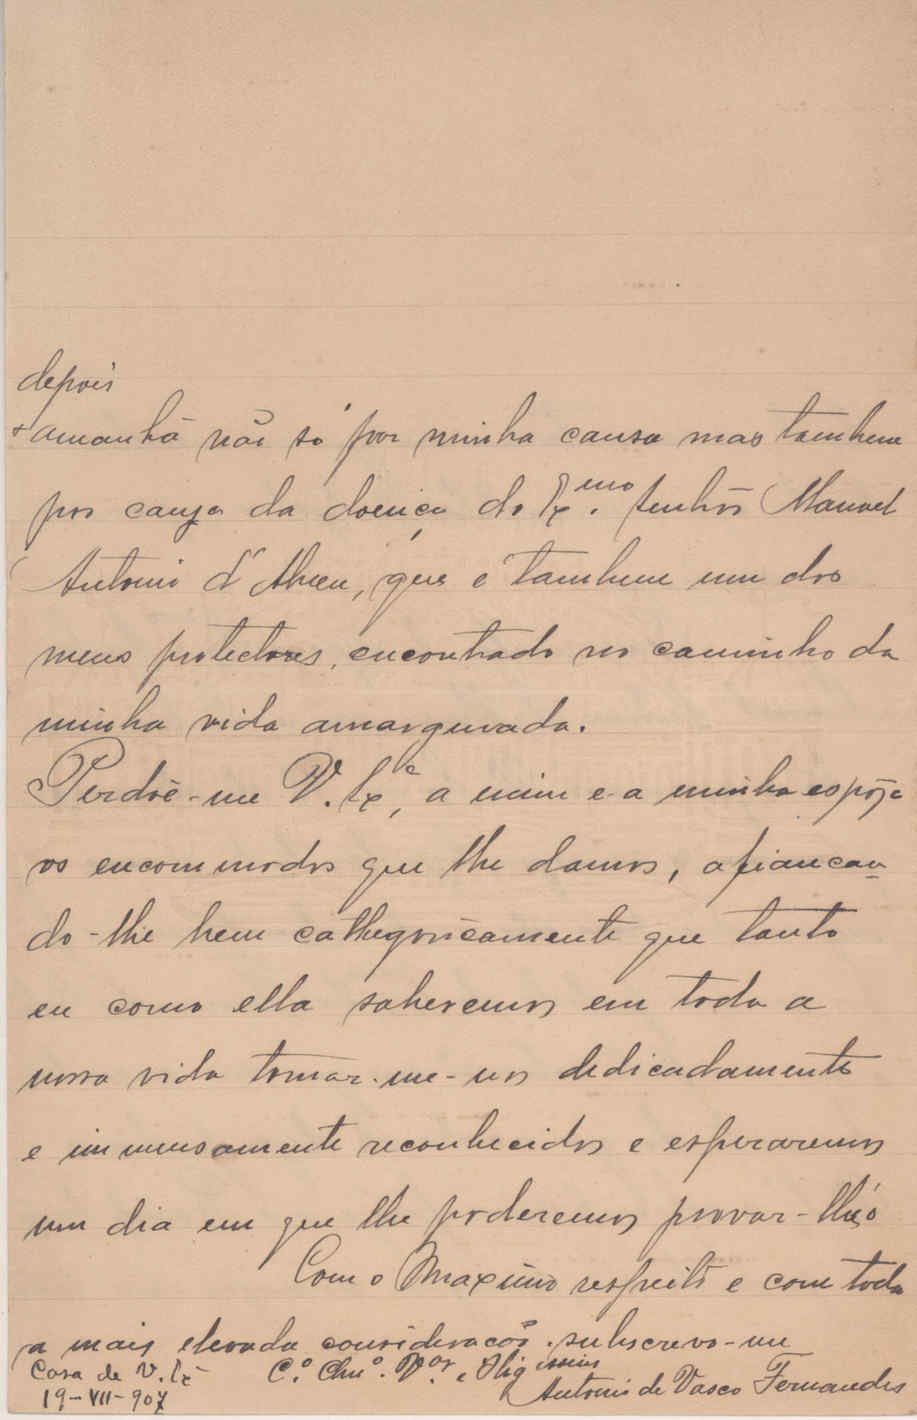 depois
amanhã não só por minha causa mas tambem
por cauza da doença do Ex.mo Senhôr Manoel
Antonio d'Abreu, que é tambem um dos
meus protectores, encontrado no caminho da
minha vida amargurada.
Perdôe-me V. Ex.ª, a mim e a minha espôza
os encommodos que lhe damos, afiançan-
do-lhe bem cathegoricamente que tanto
eu como ella saberemos em toda a
nossa vida tornar-me-nos dedicadamente
e immensamente reconhecidos e esperaremos
um dia em que lhe poderemos provar-lh'o
Com o Maximo respeito e com toda
a mais elevada consideração subscrevo-me
Casa de V. Ex.ª C.º V.or e Obrig.issimo
19-VII-907 Antonio de Vasco Fernandes